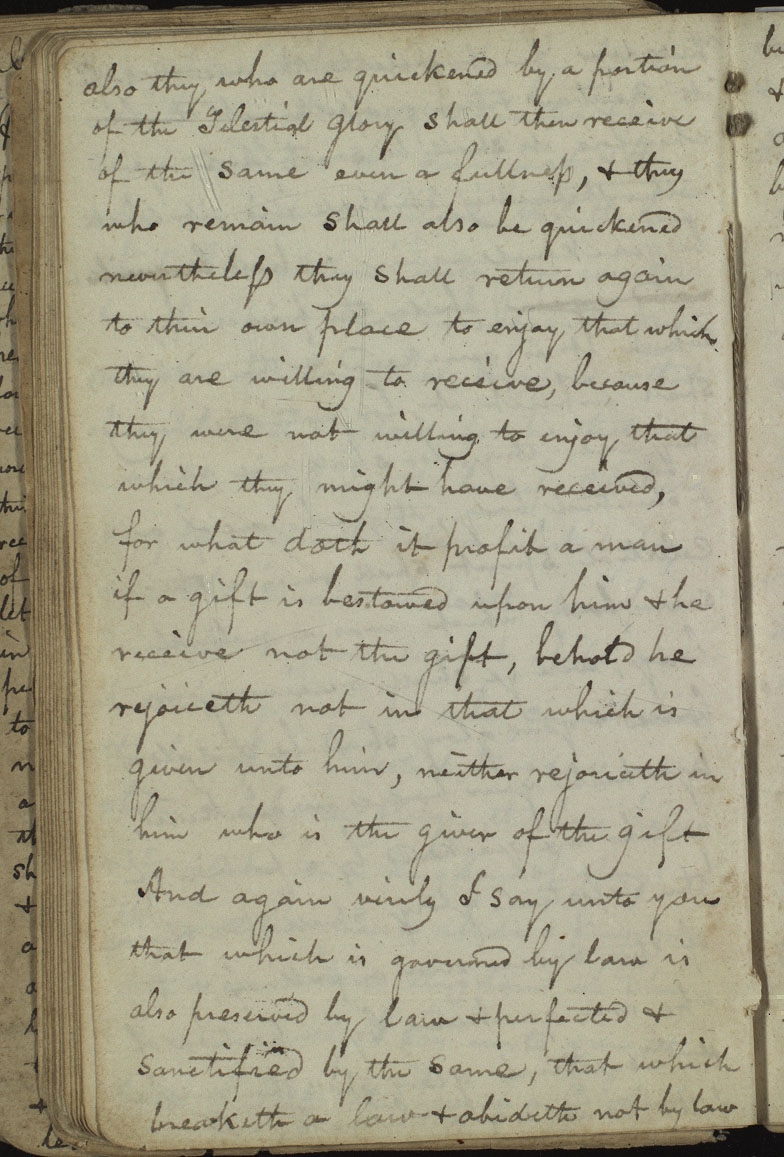 also they who are quickened by a portion
of the Telestial glory shall then receive
of the same even a fullness, & they
who remain shall also be quickened
nevertheless they shall return again
to their own place to enjoy that which
they are willing to receive, because
they were not willing to enjoy that
which they might have received,
for what doth it profit a man
if a gift is bestowed upon him & he
receive not the gift, behold he
rejoiceth not in that which is
given unto him, neither rejoiceth in
him who is the giver of the gift
And again verily I say unto you
that which is governed by law is
also preserved by law & perfected &
sanctified by the same, that which
breaketh a law & abideth not by law